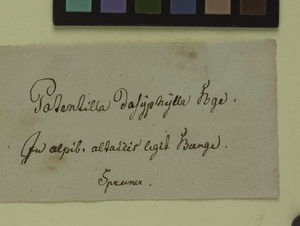 Potentilla dasÿphÿlla Bge.
In alpib. altaicis legit Bunge.
Spruner.